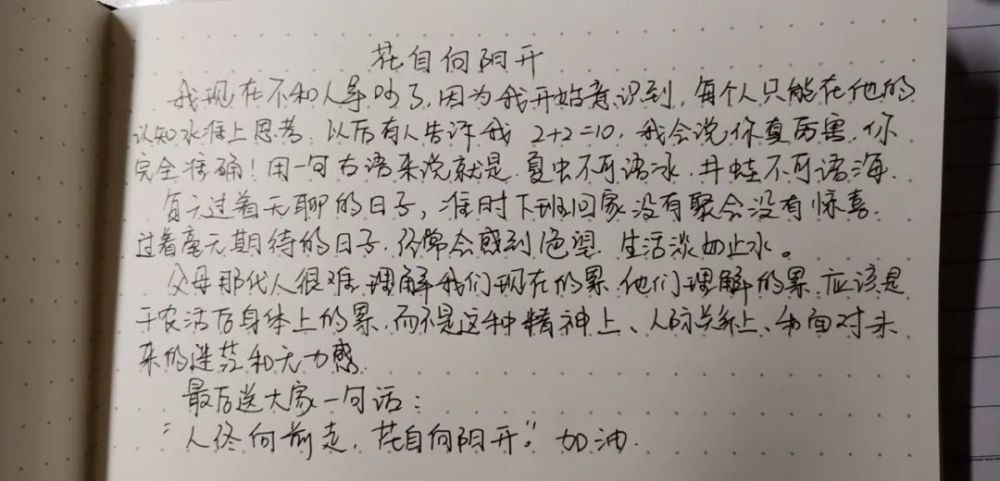 花自向阳开
我现在不和人争吵了,因为我开始意识到,每个人只能在他的
认知水准上思考,以后有人告诉我 2+2=10,我会说你真厉害,你
完全准确!用一句古语来说就是,夏虫不可语冰,井蛙不可语海.
每天过着无聊的日子,准时下班回家没有聚会没有惊喜.
过着毫无期待的日子,经常会感到绝望 生活淡如止水。
父母那代人很难理解我们现在的累,他们理解的累,应该是
干农活后身体上的累,而不是这种精神上、人际关系上、和面对未
来的迷茫和无力感.
最后送大家一句话:
“人终向前走,花自向阳开。”加油.